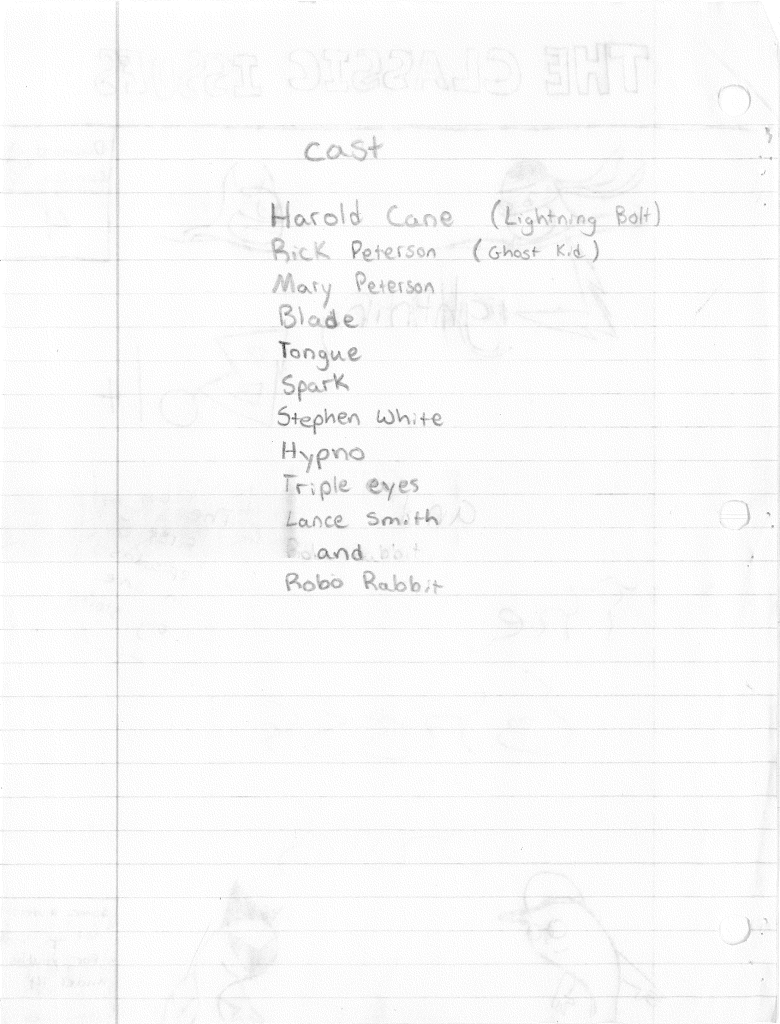 cast
Harold Cane (Lightning Bolt)
Rick Peterson (Ghost Kid)
Mary Peterson
Blade
Tongue
Spark
Stephen White
Hypno
Triple eyes
Lance Smith
and
Robo Rabbit